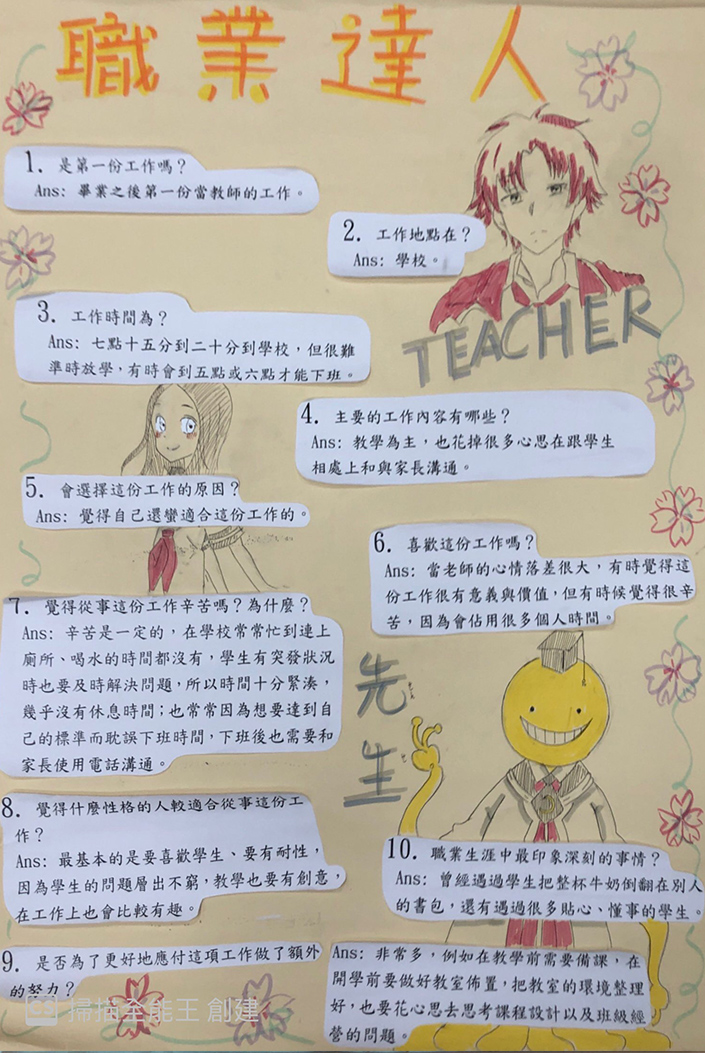 職業達人
1. 是第一份工作嗎？
Ans: 畢業之後第一份當教師的工作。
2. 工作地點在？
Ans: 學校。
TEACHER
3. 工作時間為？
Ans: 七點十五分到二十分到學校，但很難
準時放學，有時會到五點或六點才能下班。
4. 主要的工作內容有哪些？
Ans: 教學為主，也花掉很多心思在跟學生
相處上和與家長溝通。
5. 會選擇這份工作的原因？
Ans: 覺得自己還蠻適合這份工作的。
6. 喜歡這份工作嗎？
Ans: 當老師的心情落差很大，有時覺得這
份工作很有意義與價值，但有時候覺得很辛
苦，因為會佔用很多個人時間。
7. 覺得從事這份工作辛苦嗎？為什麼？
Ans: 辛苦是一定的，在學校常常忙到連上
廁所、喝水的時間都沒有，學生有突發狀況
時也要及時解決問題，所以時間十分緊湊，
幾乎沒有休息時間；也常常因為想要達到自
己的標準而耽誤下班時間，下班後也需要和
家長使用電話溝通。
先生
8. 覺得什麼性格的人較適合從事這份工
作？
Ans: 最基本的是要喜歡學生、要有耐性，
因為學生的問題層出不窮，教學也要有創意，
在工作上也會比較有趣。
9. 是否為了更好地應付這項工作做了額外
的努力？
Ans: 非常多，例如在教學前需要備課，在
開學前要做好教室佈置，把教室的環境整理
好，也要花心思去思考課程設計以及班級經
營的問題。
10. 職業生涯中最印象深刻的事情？
Ans: 曾經遇過學生把整杯牛奶倒翻在別人
的書包，還有遇過很多貼心、懂事的學生。
掃描全能王 創建